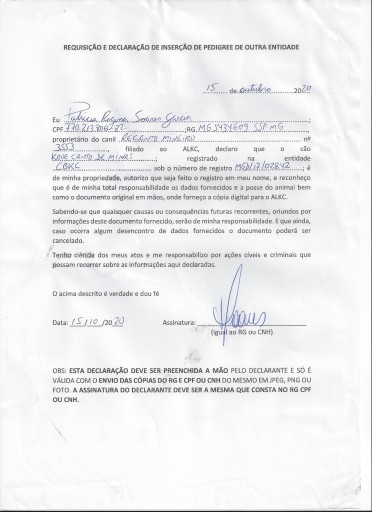 REQUISIÇÃO E DECLARAÇÃO DE INSERÇÃO DE PEDIGREE DE OUTRA ENTIDADE
15 de outubro 2020
Eu Patricia Soares
CPF RG MG5434609 SSP MG
proprietário do canil RECANTO MINEIRO nº
3553, filiado ao ALKC, declaro que o cão
CANTO DE MINAS; registrado na entidade
CBKC sob o número de registro; é
de minha propriedade, autorizo que seja feito o registro em meu nome, e reconheço
que é de minha total responsabilidade os dados fornecidos e a posse do animal bem
como o documental original em mãos, onde forneço a cópia digital para o ALKC.
Sabendo-se que quaisquer causas ou consequências futuras recorrentes, oriundos por
informações deste documento fornecido, serão de minha responsabilidade. E que ainda,
caso ocorra algum desencontro de dados fornecidos o documento poderá ser
cancelado.
Tenho ciência dos meus atos e me responsabilizo por ações cíveis e criminais que
possam recorrer sobre as informações aqui declaradas.
O acima descrito é verdade e dou fé
Data: 15/10/2020 Assinatura:
(igual ao RG ou CNH)
OBS: ESTA DECLARAÇÃO DEVE SER PREENCHIDA A MÃO PELO DECLARANTE E SÓ É
VÁLIDA COM O ENVIO DAS CÓPIAS DO RG E CPF OU CNH DO MESMO EM JPEG, PNG OU
FOTO. A ASSINATURA DO DECLARANTE DEVE SER A MESMA QUE CONSTA NO RG CPF
OU CNH.